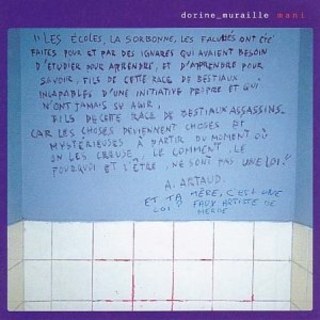 dorine_muraille mani
"LES ÉCOLES, LA SORBONNE, LES FACULTÉS ONT ÉTÉ
FAITES POUR ET PAR DES IGNARES QUI AVAIENT BESOIN
D'ÉTUDIER POUR APPRENDRE, ET D'APPRENDRE POUR
SAVOIR, FILS DE CETTE RACE DE BESTIAUX
INCAPABLES D'UNE INITIATIVE PROPRE ET QUI
N'ONT JAMAIS SU AGIR,
FILS DE CETTE RACE DE BESTIAUX ASSASSINS_
CAR LES CHOSES DEVIENNENT CHOSES ET
MYSTÉRIEUSES À PARTIR DU MOMENT OÙ
ON LES CREUSE, LE COMMENT, LE
POURQUOI ET L'ÊTRE, NE SONT PAS UNE LOI."
A. ARTAUD.
ET TA MÈRE, C'EST UNE
LOI? FAUX ARTISTE DE
MERDE